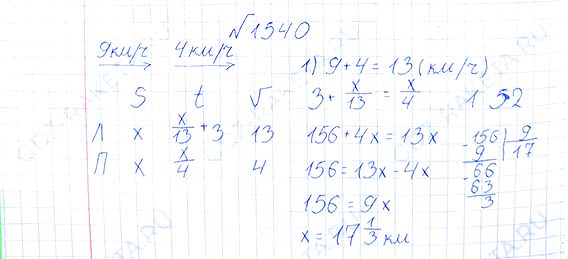 √1540
9км/ч 4км/ч
1) 9+4=13(км/ч)
S t √
3+x/13=x/4 1 52
Л x x/13+3 13
156+4x=13x
-156 | 9
9 17
П x x/4 4
156=13x-4x
-66
63
3
156=9x
x=17 1/3 км